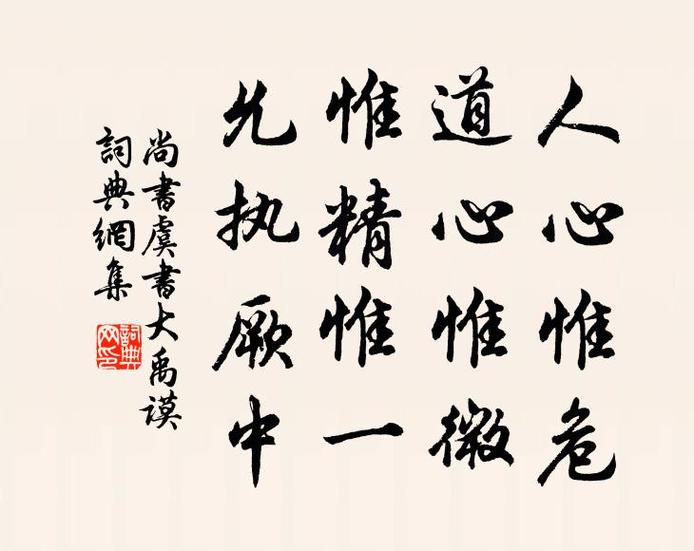 人心惟危
道心惟微
惟精惟一
允执厥中
尚書虞書大禹謨
詞典網集
詞典网印